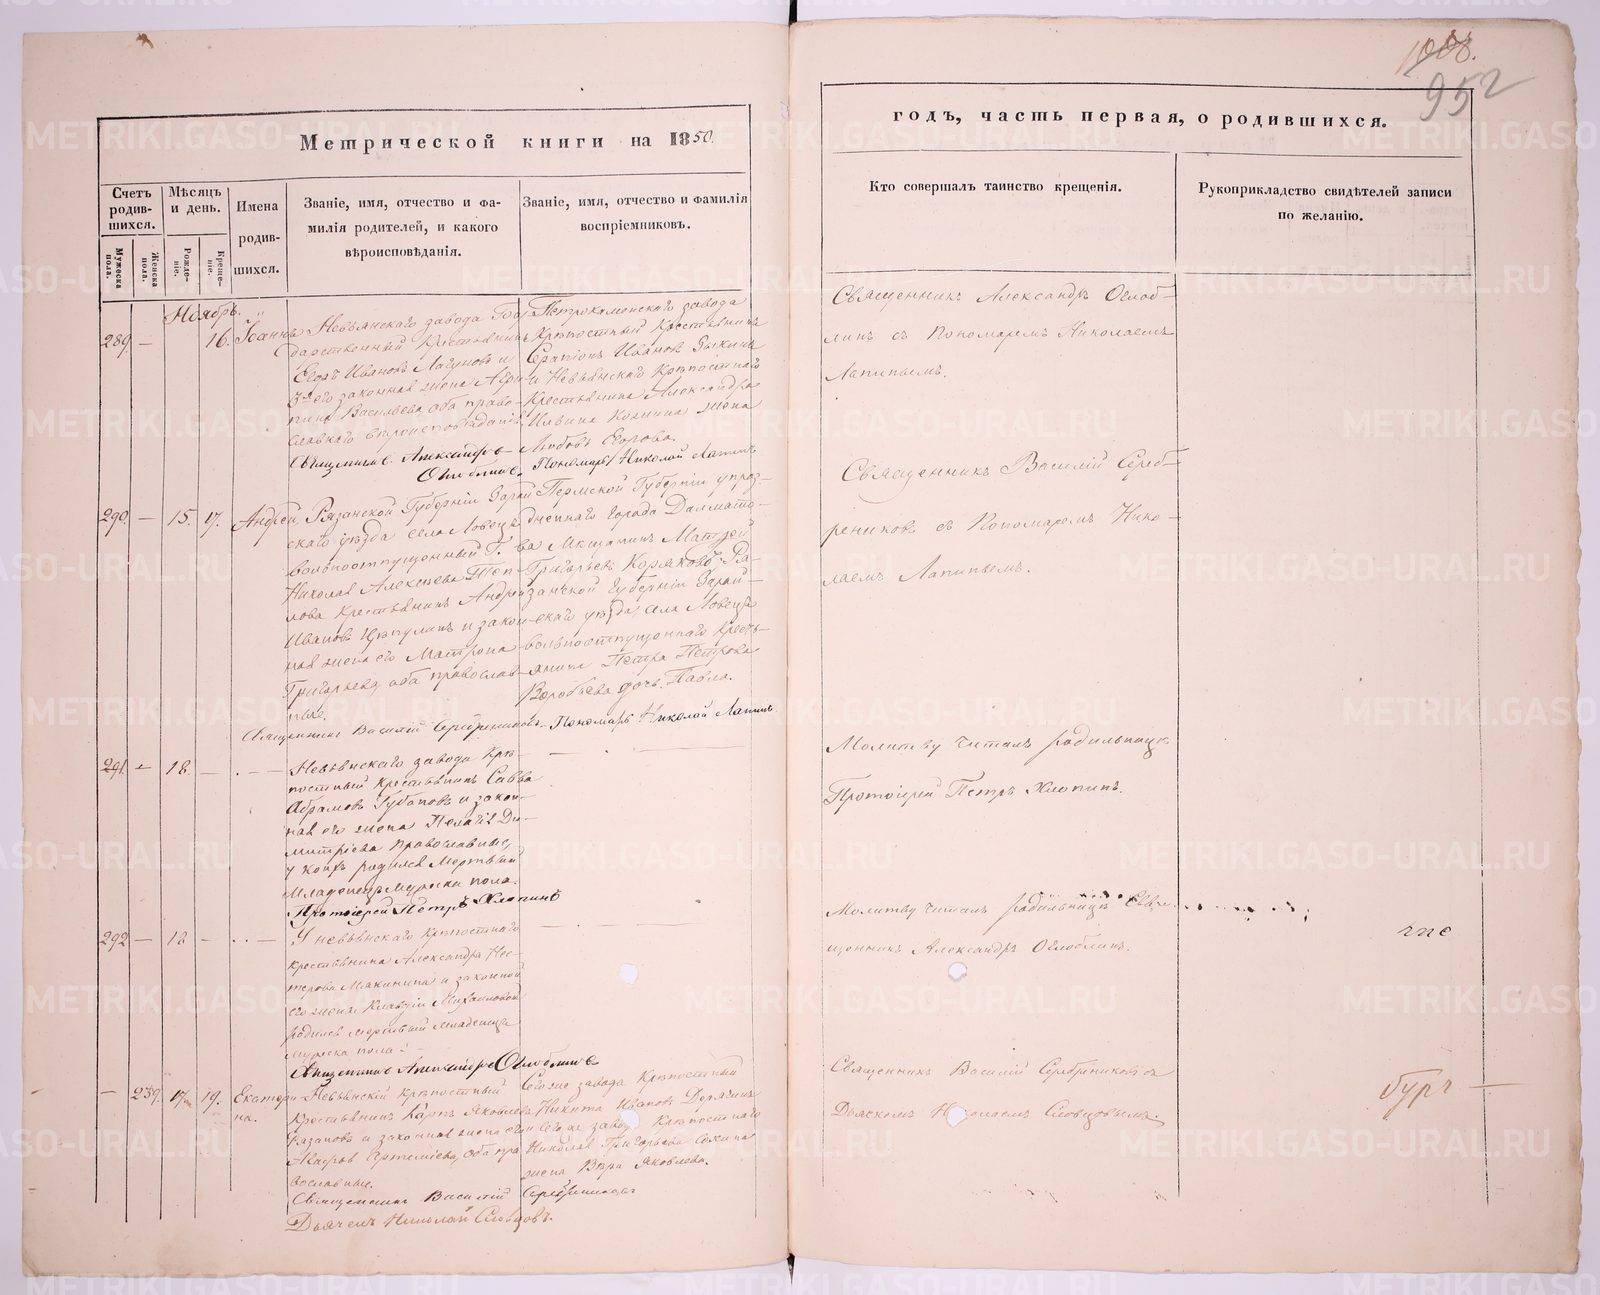 1008.
952
Метрической книги на 1850.
годъ, часть первая, о родившихся.
Счетъ родив-шихся.
Мужеска пола.
Женска пола.
Мѣсяцъ и день.
Рожде-ніе.
Креще-ніе.
Имена родив-шихся.
Званіе, имя, отчество и фа-
милія родителей, и какого
вѣроисповѣданія.
Званіе, имя, отчество и фамилія
воспріемниковъ.
Кто совершалъ таинство крещенія.
Рукоприкладство свидѣтелей записи
по желанію.
Ноябрь.
289 — 16. Іоаннъ
Невьянскаго завода Госу-
дарственный Крестьянинъ
Егоръ Ивановъ Лагуновъ и
его законная жена Агри-
пина Васильева оба право-
славнаго вѣроисповѣданія
Священникъ Александръ
Оглоблинъ
Петрокаменскаго завода
Крѣпостный Крестьянинъ
Серапіонъ Ивановъ
и Невьянскаго Крѣпостнаго
Крестьянина Александра
Ильина жена
Любовь Егорова.
Пономарь Николай Лапинъ
Священникъ Александръ Оглоб-
линъ съ Пономаремъ Николаемъ
Лапинымъ.
290 — 15. 17. Андрей
Рязанской Губерніи Зарай
скаго уѣзда села Ловецъ
вольноотпущенный Г.
Николая Алексѣева
лова Крестьянинъ Андрей
Ивановъ и закон-
ная жена его Матрона
Григорьева, оба православ-
ные.
Священникъ Василій Серебрениковъ
Пермской Губерніи упраз-
дненнаго города Далмато-
ва Мѣщанинъ Матѳей
Григорьевъ Коряковъ, Ря-
занской Губерніи Зарай-
скаго уѣзда села Ловецъ
вольноотпущеннаго Кресть-
янина Петра Петрова
Воробьева дочь Павла.
Пономарь Николай Лапинъ
Священникъ Василій Сереб-
рениковъ съ Пономаремъ Нико-
лаемъ Лапинымъ.
291 — 18. —
Невьянскаго завода Крѣ-
постный Крестьянинъ Савва
Абрамовъ Губановъ и закон-
ная его жена Пелагія Ди-
митріева православные,
у коихъ родился Мертвый
Младенецъ Мужеска пола.
Протоіерей Петръ Хлопинъ
Молитву читалъ родильницѣ
Протоіерей Петръ Хлопинъ.
292 — 18 —
У невьянскаго Крѣпостнаго
крестьянина Александра Нес-
терова Мякинина и законной
его жены Клавдіи Михайловой
родился мертвый младенецъ
мужеска пола.
Священникъ Александръ Оглоблинъ
Молитву читалъ родильницѣ Свя-
щенникъ Александръ Оглоблинъ.
— 239. 17 19. Екатери-
на.
Невьянскій Крѣпостный
Крестьянинъ Карпъ Яковлевъ
Казановъ и законная жена его
Мавра Артемьева, оба пра
вославные.
Священникъ Василій Серебрениковъ
Дьячекъ Николай Словцовъ.
Сего же завода Крѣпостный
Никита Ивановъ
и Сего же завода Крѣпостнаго
Николая Григорьева
жена Вѣра Яковлева.
Священникъ Василій Серебрениковъ съ
Дьячкомъ Николаемъ Словцовымъ.